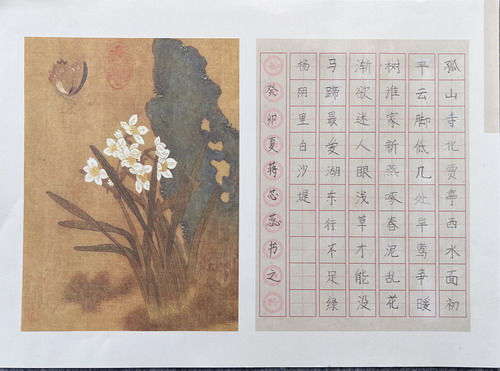 孤山寺北贾亭西水面初
平云脚低几处早莺争暖
树谁家新燕啄春泥乱花
渐欲迷人眼浅草才能没
马蹄最爱湖东行不足绿
杨阴里白沙堤
癸卯夏蒋芯蕊书之